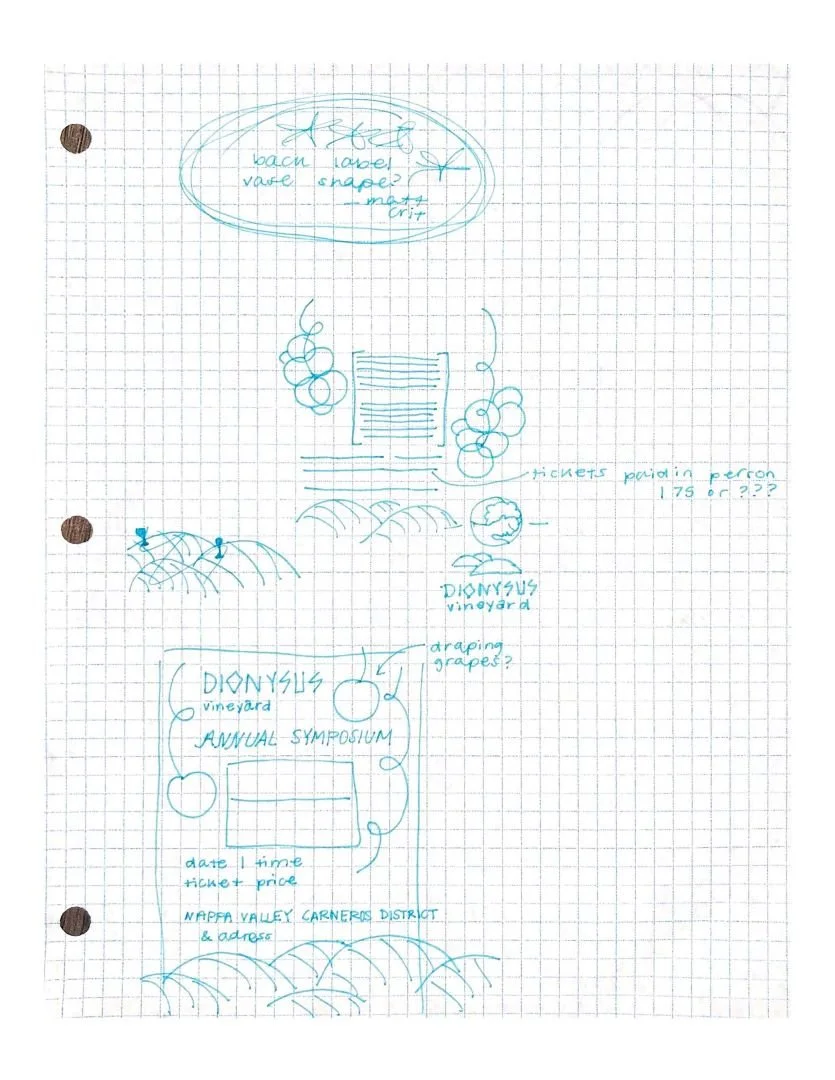 back label
vase shape?
- matt
crit
tickets paid in person
175 or ???
DIONYSUS
vineyard
draping
grapes?
DIONYSUS
vineyard
ANNUAL SYMPOSIUM
date | time
ticket price
NAPPA VALLEY CARNEROS DISTRICT
& adress